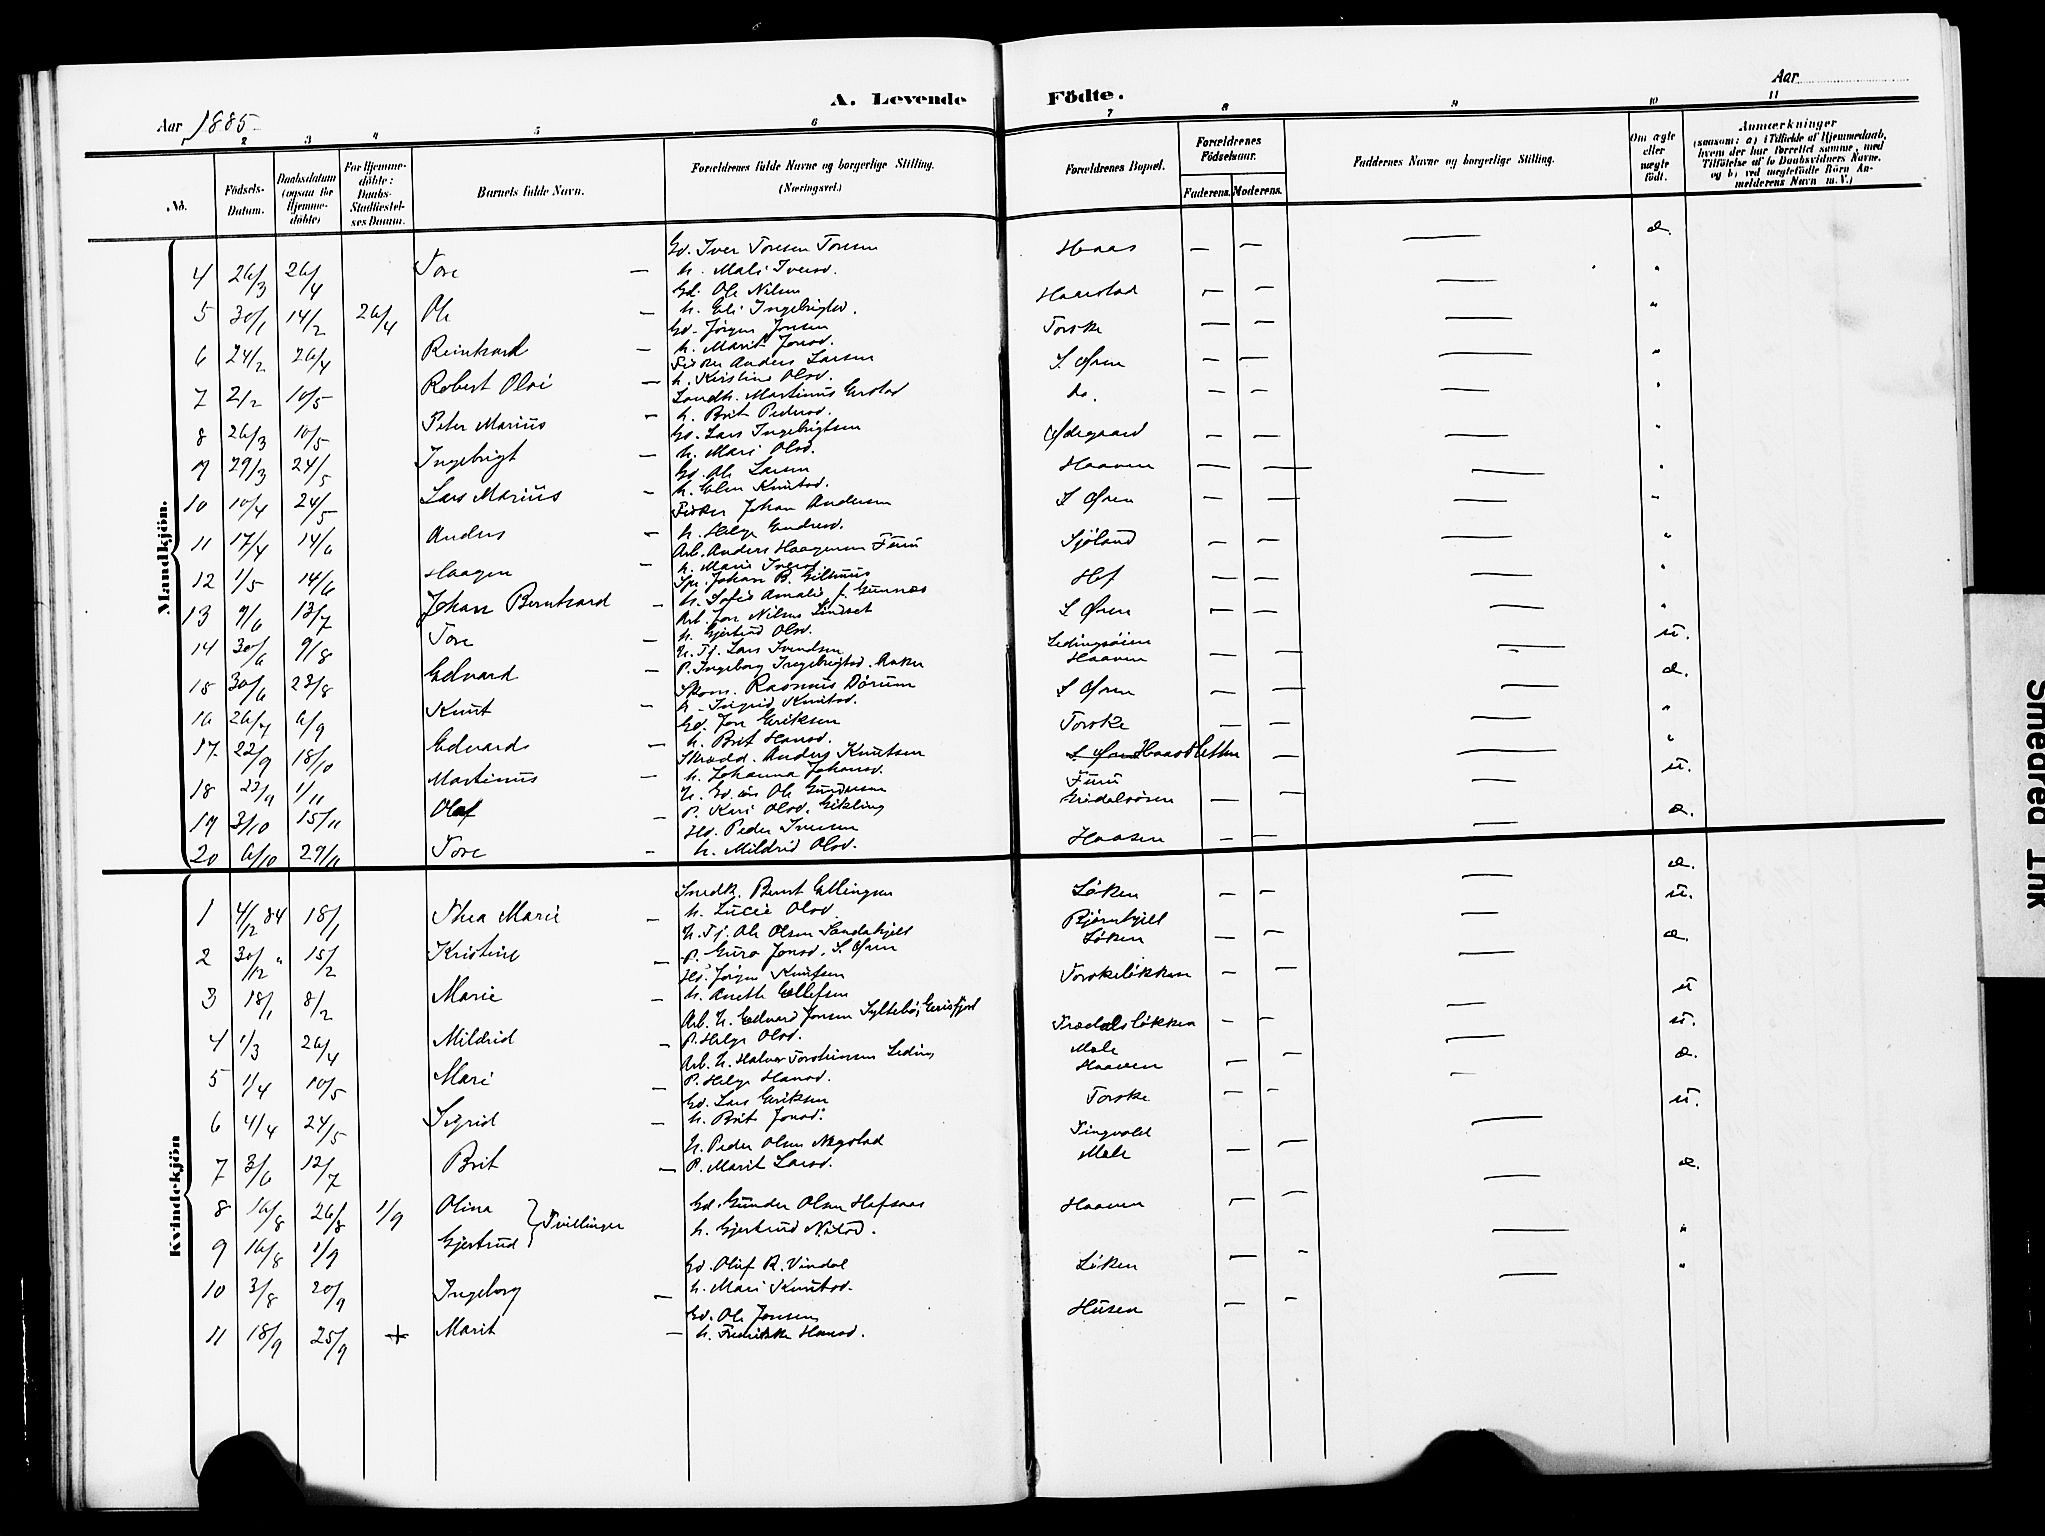 A. Levende Födte.
Aar 1885.
Aar
2 3 4 5 6 7 8 9 10 11
No.
Födsels-Datum.
Daabsdatum (ogsaa for Hjemmedöbte)
For Hjemmedöbte: Daabs-Stadfæstelses Daam.
Barnets fulde Navn.
Forældrenes fulde Navne og borgerlige Stilling. (Næringsvei.)
Forældrenes Bopæl.
Forældrenes Födselsaar.
Faderens. Moderens.
Faddernes Navne og borgerlige Stilling.
Om ægte eller uægte födt.
Anmærkninger (saasom: a) i Tilfælde af Hjemmedaab, hvem der har forrettet samme, med Tilföielse af to Daabsvidners Navne, og b) ved uægtefödte Börn Anmelderens Navn m. V.)
Mandkjön.
4 26/3 26/4 Tore — Gd. Iver Toresen Toresen h. Mali Iversd. Haas — — — æ.
5 30/1 14/2 26/4 Ole — Gd. Ole Nilsen h. Eli Ingebrigtsd. Haarstad — — — "
6 24/2 26/4 Reinhard — Gd. Jørgen Jonsen h. Marit Jonsd. Torske — — — "
7 2/2 10/5 Robert Olai — Fisker Anders Larsen h. Kirstine Olsd. S. Øren — — — "
8 26/3 10/5 Peter Marius — Landh. Martinus h. Brit Pedersd. do. — — — "
9 29/3 24/5 Ingebrigt — Gd. Lars Ingebrigtsen h. Mari Olsd. Ødegaard — — — "
10 10/4 24/5 Lars Marius — Gd. Ole Larsen h. Elen Knutsd. Haaven — — — "
11 17/4 14/6 Anders — Fisker Johan Andersen h. Helge S Øren — — — "
12 1/5 14/6 Haagen — Arb. Anders Haagensen Furu h. Marit Iversd. Sjøland — — — "
13 9/6 13/7 Johan Bernhard — Johan B. h. Sofie Amalie f. Gunnæs Hof — — — "
14 30/6 9/8 Tore — Arb. Jon Nilsen Lindset h. Gjertrud Olsd. S Øren — — — "
15 30/6 23/8 Edvard — U. Tj. Lars Svendsen P. Ingeborg Ingebrigtsd. Aaker Ledingsøien Haaven — — — u.
16 26/7 6/9 Knut — Skom. Rasmus Dørum h. Ingrid Knutsd. S Øren — — — æ.
17. 22/9 18/10 Edvard — Gd. Jon Eriksen h. Brit Hansd. Torske — — — "
18 22/9 1/11 Martinus — Skrædd. Anders Knutsen h. Johanna Johansd. Haasletten — — "
19 3/10 15/11 Olaf — U. Gd. Ole Gundersen P. Kari Olsd. Eikling Furu — — — u.
20 6/10 29/11 Tore — Hd. Peder Iversen h. Mildrid Olsd. Haasen — — — æ.
Kvindekjön
1 4/12 84 18/1 Thea Marie — Snedk. Bernt Ellingsen h. Lucie Olsd. Løken — — — æ.
2 30/12 " 15/2 Kristine — U. Tj. Ole Olsen Sandakjelt P. Guro Jonsd. S. Øren Bjørnhjell Løken — — — u.
3 18/1 8/2 Marie — Hd. Jørgen Knutsen h. Anette Ellefsen Torskeløkken — — — æ.
4 1/3 26/4 Mildrid — Arb. U. Edvard Jonsen Syltebø, Eirisfjord P. Helge Olsd. Trædalsløkken — — — u
5 1/4 10/5 Mari — Arb. U. Halvor Torsteinsen Leding P. Helge Hansd. Mæle Haaven — — — u.
6 4/4 24/5 Sigrid — Gd. Lars Eriksen h. Brit Jonsd. Torske — — — æ.
7 3/6 12/7 Brit — U. Peder Olsen P. Marit Larsd. Tingvold Mæle — — — u.
8 16/8 26/8 1/9 Olina
9 16/8 1/9 Gjertrud } Tvillinger Gd. Gunder Olsen Hafsaas h. Gjertrud Nilsd. Haaven — — — æ.
10 3/8 20/9 Ingeborg — Gd. Oluf R. Vindal h. Mari Knutsd. Løken — — — "
11 18/9 25/9 + Marit — Gd. Ole Jonsen h. Fredrikke Hansd. Husen — — — "
Smeared Ink